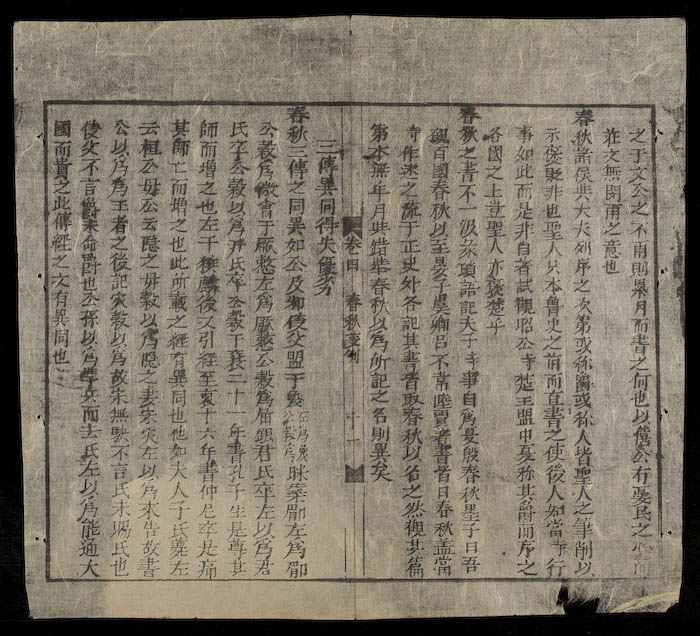 之于文公之不雨則累月而書之何也以僖公有憂民之心而
文無閔雨之意也
春秋諸侯與大夫列序之次第或称爵或称人皆聖人之筆削以
示褒貶非也聖人只本魯史之前而直書之使後人知當時行
事如此而是非自者試觀昭公寺楚王盟中夏称其爵而序之
各國之上豈聖人亦褒楚乎
春秋之書不一汲冢項語記夫子時事自為夏殷春秋墨子曰吾
觀百國春秋以至晏子虞卿呂不韋陸賈著書皆曰春秋盖當
時作述之流于正史外各記其書皆取春秋以名之然觀其篇
第本無年月與錯舉春秋以為所記之名則異矣
三傳異同得失優劣
春秋三傳之同異如公及邾儀父盟于蔑公穀為昧築郿左為郿
公穀為微會于厥憖左為厥憖公穀為屈銀君氏卒左以為君
氏卒公穀以為尹氏卒公穀于襄二十一年書孔子生是尊其
師而增之也左于獲麟後又引經至哀十六年書仲尼卒是痛
其師亡而增之也此所載之經有異同也他如夫人子氏薨左
云桓公母公云隐之母穀以為隐之妻宋灾左以為來告故書
公以為為王者之後記灾穀以為故宋無駭不言氏未賜氏也
儀父不言爵未命爵也公孫以為學兵而去氏左以為能通大
國而貴之此傳經之文有異同也
卷四 春秋
十一